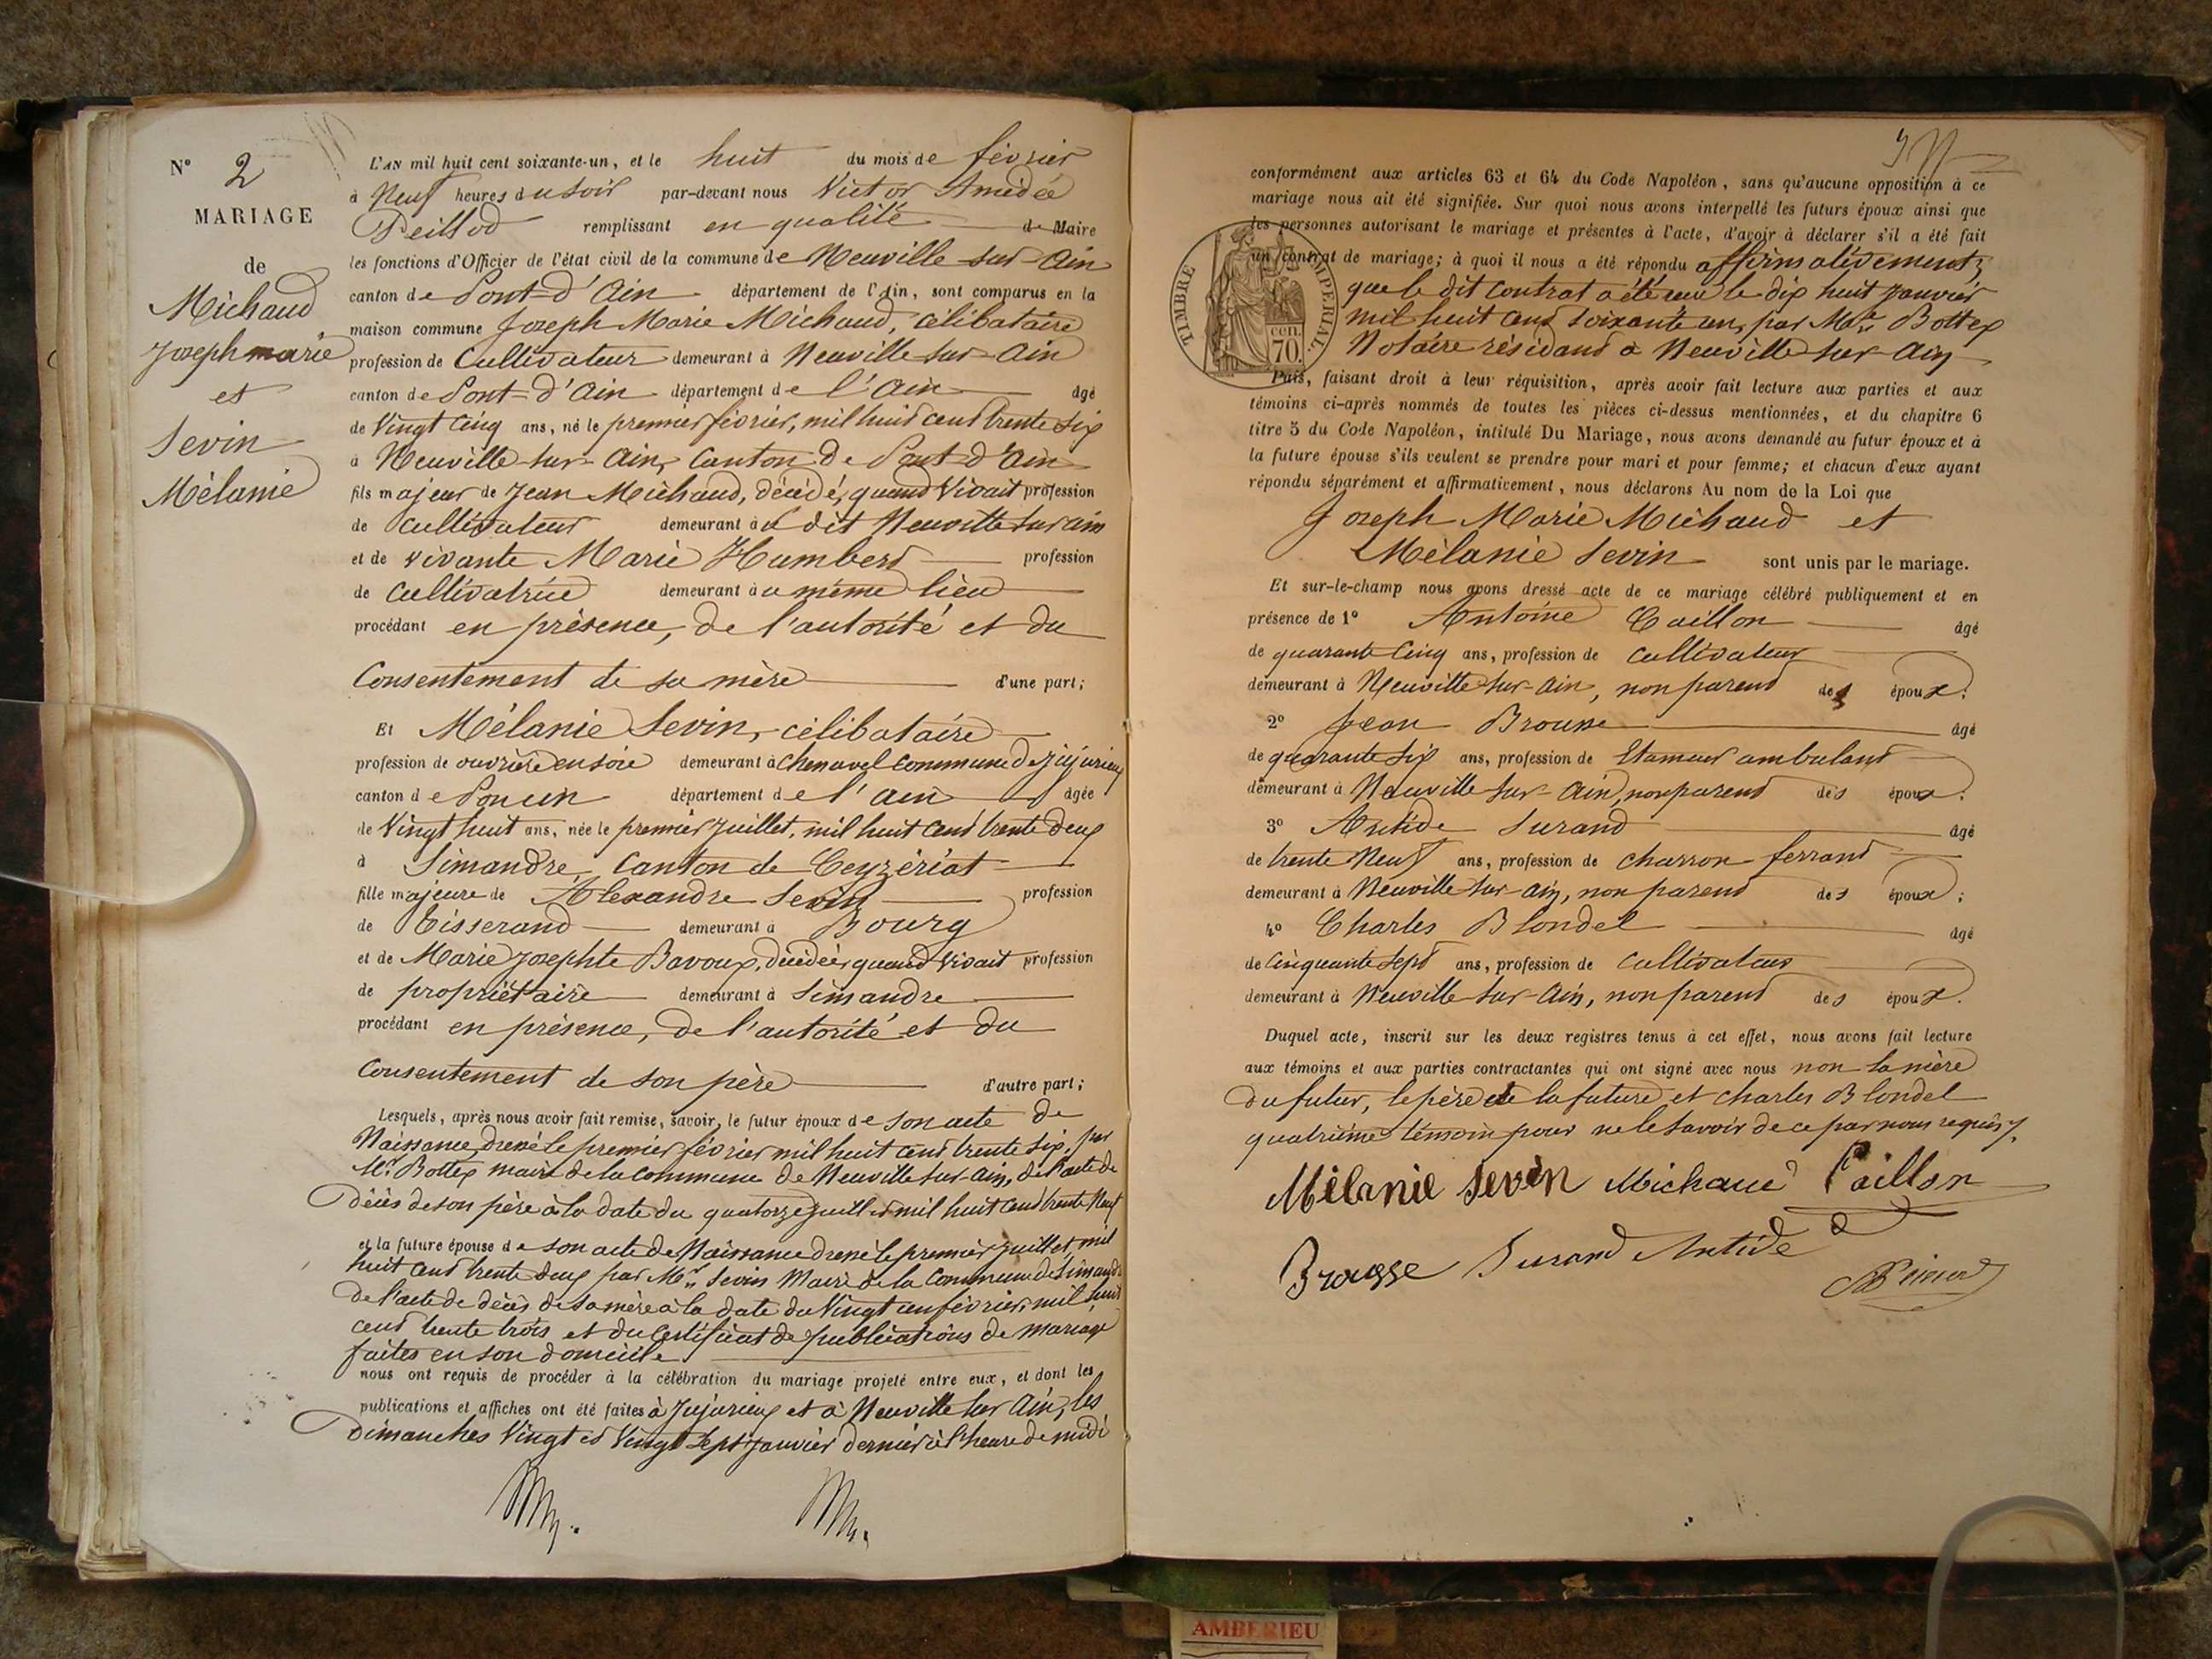 N° 2
MARIAGE
de
Michaud
Joseph marie
et
Sevin
Mélanie
L'AN mil huit cent soixante-un, et le huit du mois de février
à Neuf heures du soir par-devant nous Victor Amédée
Peillod remplissant en qualité de Maire
les fonctions d'Officier de l'état civil de la commune de Neuville sur Ain
canton de Pont-d'Ain département de l'Ain, sont comparus en la
maison commune Joseph Marie Michaud, célibataire
profession de Cultivateur demeurant à Neuville sur Ain
canton de Pont-d'Ain département de l'Ain âgé
de Vingt Cinq ans, né le premier février, mil huit cent trente six
à Neuville sur Ain, Canton de Pont d'Ain
fils majeur de Jean Michaud, décédé, quand Vivait profession
de Cultivateur demeurant au dit Neuville sur ain
et de vivante Marie Humbert profession
de Cultivatrice demeurant au même lieu
procédant en présence, de l'autorité et du
Consentement de sa mère d'une part;
Et Mélanie Sevin, célibataire
profession de ouvrière en soie demeurant à Chenavel Commune de Jujurieux
canton de Poncin département de l'ain âgée
de Vingt huit ans, née le premier Juillet, mil huit cent trente deux
à Simandre, Canton de Ceyzériat
fille majeure de Alexandre Sevin profession
de Tisserand demeurant à Bourg
et de Marie Josephte Bavoux, décédée, quand Vivait profession
de propriétaire demeurant à Simandre
procédant en présence, de l'autorité et du
Consentement de son père d'autre part;
Lesquels, après nous avoir fait remise, savoir, le futur époux de son acte de
Naissance, dressé le premier février mil huit cent trente six, par
Mr. Bottex maire de la Commune de Neuville sur-ain, de l'acte de
décès de son père à la date du quatorze juillet mil huit cent trente Neuf
et la future épouse de son acte de Naissance dressé le premier Juillet, mil
huit cent trente deux par Mr. Sevin Maire de la Commune de Simandre
De l'acte de décès de sa mère à la date du Vingt un février, mil huit
cent trente trois et du Certificat de publications de mariage
faites en son domicile
nous ont requis de procéder à la célébration du mariage projeté entre eux, et dont les
publications et affiches ont été faites à Jujurieux et à Neuville sur Ain, les
Dimanches Vingt et Vingt Sept Janvier dernier à l'heure de midi
conformément aux articles 63 et 64 du Code Napoléon, sans qu'aucune opposition à ce
mariage nous ait été signifiée. Sur quoi nous avons interpellé les futurs époux ainsi que
les personnes autorisant le mariage et présentes à l'acte, d'avoir à déclarer s'il a été fait
un contrat de mariage; à quoi il nous a été répondu affirmativement,
que le dit Contrat a été reçu le dix huit Janvier
mil huit Cent Soixante un, par Me. Bottex
Notaire résidant à Neuville sur Ain
TIMBRE IMPÉRIAL
cen.
70.
Puis, faisant droit à leur réquisition, après avoir fait lecture aux parties et aux
témoins ci-après nommés de toutes les pièces ci-dessus mentionnées, et du chapitre 6
titre 5 du Code Napoléon, intitulé Du Mariage, nous avons demandé au futur époux et à
la future épouse s'ils veulent se prendre pour mari et pour femme; et chacun d'eux ayant
répondu séparément et affirmativement, nous déclarons Au nom de la Loi que
Joseph Marie Michaud et
Mélanie Sevin sont unis par le mariage.
Et sur-le-champ nous avons dressé acte de ce mariage célébré publiquement et en
présence de 1° Antoine Caillon âgé
de quarante Cinq ans, profession de Cultivateur
demeurant à Neuville sur-Ain, non parent des époux;
2° Jean Brousse âgé
de quarante six ans, profession de Etameur ambulant
demeurant à Neuville sur-Ain, non parent des époux;
3° Antide Surand âgé
de trente Neuf ans, profession de Charron ferrant
demeurant à Neuville sur-Ain, non parent des époux;
4° Charles Blondel âgé
de Cinquante Sept ans, profession de Cultivateur
demeurant à Neuville sur-Ain, non parent des époux.
Duquel acte, inscrit sur les deux registres tenus à cet effet, nous avons fait lecture
aux témoins et aux parties contractantes qui ont signé avec nous non la mère
du futur, le père de la future et Charles Blondel
quatrième témoin pour ne le savoir de ce par nous requis.
Mélanie Sevin Michaud Caillon
Brousse Surand Antide
AMBERIEU